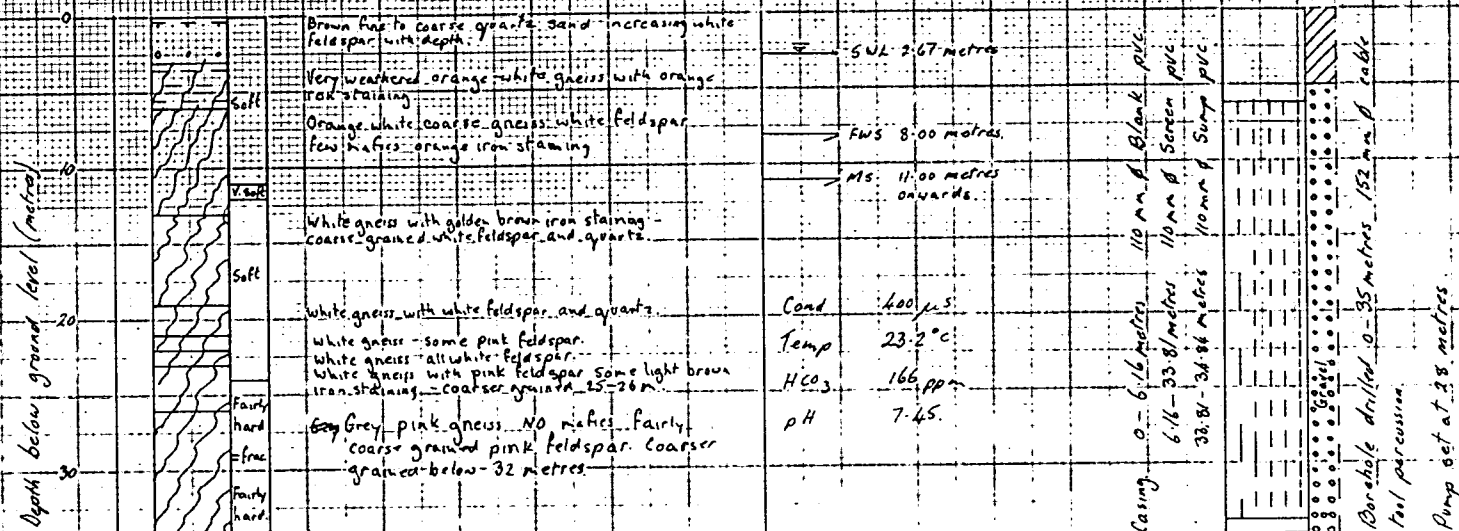 Depth below ground level (metres)
0
10
20
30
Soft
V. soft
Soft
Fairly
hard
=frac
Fairly
hard.
Brown fine to coarse quartz sand increasing white
feldspar with depth.
Very weathered orange-white gneiss with orange
iron staining
Orange white coarse gneiss white feldspar
few mafics orange iron staining
White gneiss with golden brown iron staining -
coarse grained white feldspar and quartz.
White gneiss with white feldspar and quartz.
White gneiss - some pink feldspar.
White gneiss - all white feldspar.
White gneiss with pink feldspar some light brown
iron staining - coarser grained 25-26m
Grey pink gneiss NO mafics fairly
coarse grained pink feldspar. Coarser
grained below - 32 metres
SWL 2.67 metres
FWS 8.00 metres.
MS 11.00 metres
onwards.
Cond 400 µs
Temp 23.2°C
HCO3 166 ppm
pH 7.45.
Casing 0-6.16 metres 110 mm Ø Blank pvc
6.16-33.81 metres 110mm Ø Screen pvc
33.81-34.84 metres 110mm Ø Sump pvc
Gravel
Borehole drilled 0-35 metres 152 mm Ø cable
tool percussion.
Pump set at 28 metres